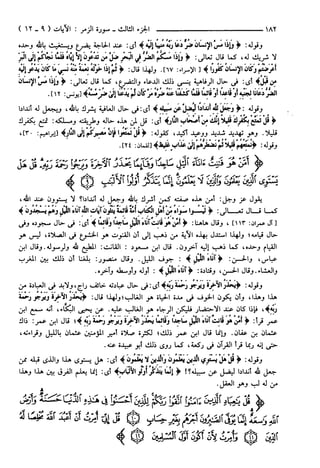 ١٨٢ الجزء الثالث ـ سورة الزمر : الآيات ( ٩ ـ ١٢ )
وقوله: ﴿ وَإِذَا مَسَّ الْإِنسَانَ ضُرٌّ دَعَا رَبَّهُ مُنِيبًا إِلَيْهِ ﴾ أي: عند الحاجة يضرع ويستغيث بالله وحده
لا شريك له، كما قال تعالى: ﴿ وَإِذَا مَسَّكُمُ الضُّرُّ فِي الْبَحْرِ ضَلَّ مَن تَدْعُونَ إِلَّا إِيَّاهُ فَلَمَّا نَجَّاكُمْ إِلَى الْبَرِّ
أَعْرَضْتُمْ وَكَانَ الْإِنسَانُ كَفُورًا ﴾ [ الإسراء: ٦٧]. ولهذا قال: ﴿ ثُمَّ إِذَا خَوَّلَهُ نِعْمَةً مِّنْهُ نَسِيَ مَا كَانَ يَدْعُو إِلَيْهِ
مِن قَبْلُ ﴾ أي: في حال الرفاهية ينسى ذلك الدعاء والتضرع، كما قال تعالى: ﴿ وَإِذَا مَسَّ الْإِنسَانَ
الضُّرُّ دَعَانَا لِجَنبِهِ أَوْ قَاعِدًا أَوْ قَائِمًا فَلَمَّا كَشَفْنَا عَنْهُ ضُرَّهُ مَرَّ كَأَن لَّمْ يَدْعُنَا إِلَى ضُرٍّ مَّسَّهُ ﴾ [يونس: ١٢].
وقوله : ﴿ وَجَعَلَ لِلَّهِ أَندَادًا لِّيُضِلَّ عَن سَبِيلِهِ ﴾ أي: في حال العافية يشرك بالله، ويجعل له أندادا
﴿ قُلْ تَمَتَّعْ بِكُفْرِكَ قَلِيلًا إِنَّكَ مِنْ أَصْحَابِ النَّارِ ﴾ أي: قل لمن هذه حاله وطريقته ومسلكه: تمتع بكفرك
قليلا. وهو تهديد شديد ووعيد أكيد، كقوله: ﴿ قُلْ تَمَتَّعُوا فَإِنَّ مَصِيرَكُمْ إِلَى النَّارِ ﴾ [إبراهيم: ٣٠]،
وقوله: ﴿ نُمَتِّعُهُمْ قَلِيلًا ثُمَّ نَضْطَرُّهُمْ إِلَى عَذَابٍ غَلِيظٍ ﴾ [لقمان: ٢٤].
أَمَّنْ هُوَ قَانِتٌ آنَاءَ اللَّيْلِ سَاجِدًا وَقَائِمًا يَحْذَرُ الْآخِرَةَ وَيَرْجُو رَحْمَةَ رَبِّهِ قُلْ هَلْ
يَسْتَوِي الَّذِينَ يَعْلَمُونَ وَالَّذِينَ لَا يَعْلَمُونَ إِنَّمَا يَتَذَكَّرُ أُولُو الْأَلْبَابِ
يقول عز وجل: أمن هذه صفته كمن أشرك بالله وجعل له أندادا؟ لا يستوون عند الله،
كما قال تعالى: ﴿ لَيْسُوا سَوَاءً مِّنْ أَهْلِ الْكِتَابِ أُمَّةٌ قَائِمَةٌ يَتْلُونَ آيَاتِ اللَّهِ آنَاءَ اللَّيْلِ وَهُمْ يَسْجُدُونَ ﴾
[ آل عمران: ١١٣] ، وقال هاهنا: ﴿ أَمَّنْ هُوَ قَانِتٌ آنَاءَ اللَّيْلِ سَاجِدًا وَقَائِمًا ﴾ أي: في حال سجوده وفي
حال قيامه؛ ولهذا استدل بهذه الآية من ذهب إلى أن القنوت هو الخشوع في الصلاة، ليس هو
القيام وحده، كما ذهب إليه آخرون. قال ابن مسعود : القانت: المطيع لله ولرسوله. وقال ابن
عباس، والحسن: ﴿ آنَاءَ اللَّيْلِ ﴾ : جوف الليل. وقال منصور: بلغنا أن ذلك بين المغرب
والعشاء. وقال الحسن، وقتادة: ﴿ آنَاءَ اللَّيْلِ ﴾ : أوله وأوسطه وآخره.
﴿ يَحْذَرُ الْآخِرَةَ وَيَرْجُو رَحْمَةَ رَبِّهِ ﴾ أي: في حال عبادته خائف راج، ولابد في العبادة من
هذا وهذا، وأن يكون الخوف في مدة الحياة هو الغالب؛ ولهذا قال: ﴿ يَحْذَرُ الْآخِرَةَ وَيَرْجُو رَحْمَةَ
رَبِّهِ ﴾، فإذا كان عند الاحتضار فليكن الرجاء هو الغالب عليه. عن يحيى البكَّاء، أنه سمع ابن
عمر قرأ: ﴿ أَمَّنْ هُوَ قَانِتٌ آنَاءَ اللَّيْلِ سَاجِدًا وَقَائِمًا يَحْذَرُ الْآخِرَةَ وَيَرْجُو رَحْمَةَ رَبِّهِ ﴾؛ قال ابن عمر: ذاك
عثمان بن عفان. وإنما قال ابن عمر ذلك؛ لكثرة صلاة أمير المؤمنين عثمان بالليل وقراءته،
حتى إنه ربما قرأ القرآن في ركعة، كما روى ذلك أبو عبيدة عنه.
وقوله: ﴿ قُلْ هَلْ يَسْتَوِي الَّذِينَ يَعْلَمُونَ وَالَّذِينَ لَا يَعْلَمُونَ ﴾ أي: هل يستوي هذا والذي قبله ممن
جعل لله أندادا ليضل عن سبيله؟! ﴿ إِنَّمَا يَتَذَكَّرُ أُولُو الْأَلْبَابِ ﴾ أي: إنما يعلم الفرق بين هذا وهذا
من له لب وهو العقل.
قُلْ يَا عِبَادِ الَّذِينَ آمَنُوا اتَّقُوا رَبَّكُمْ لِلَّذِينَ أَحْسَنُوا فِي هَذِهِ الدُّنْيَا حَسَنَةٌ وَأَرْضُ
اللَّهِ وَاسِعَةٌ إِنَّمَا يُوَفَّى الصَّابِرُونَ أَجْرَهُم بِغَيْرِ حِسَابٍ قُلْ إِنِّي أُمِرْتُ أَنْ أَعْبُدَ اللَّهَ مُخْلِصًا لَّهُ
الدِّينَ وَأُمِرْتُ لِأَنْ أَكُونَ أَوَّلَ الْمُسْلِمِينَ